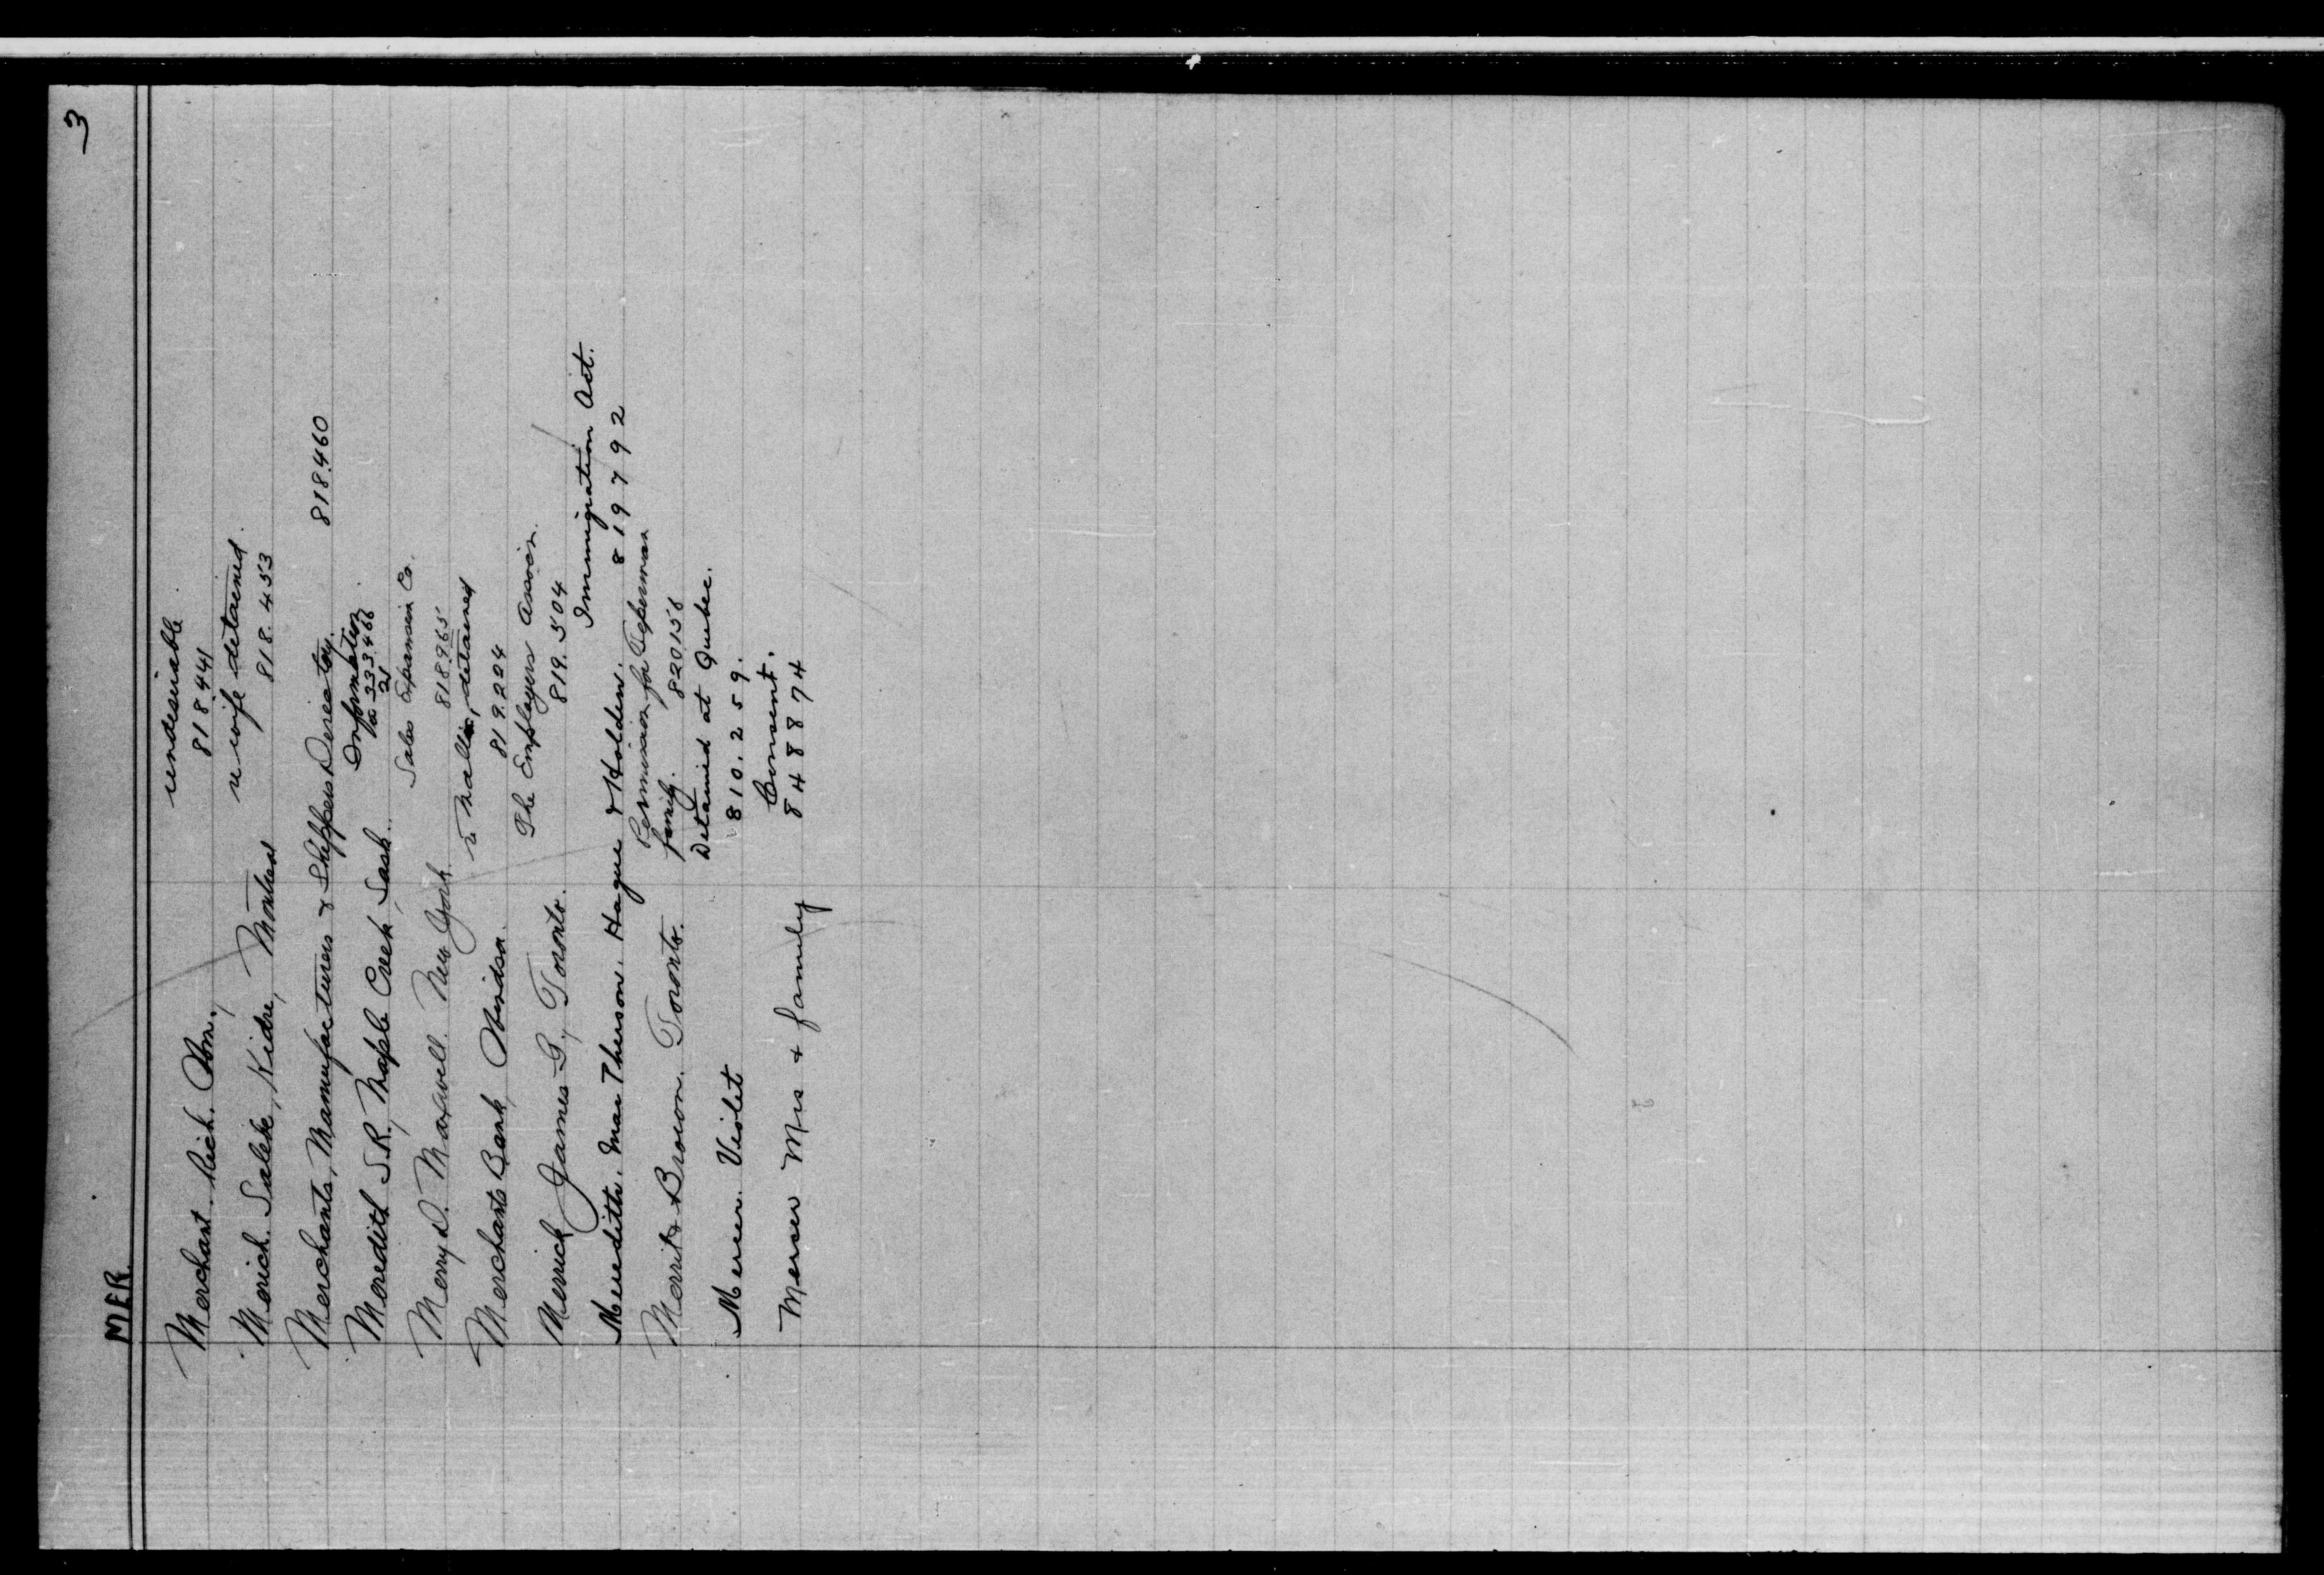 3
MER.
Merchant. Rich. Ont. undesirable
818441
Merich. Salek, Kidre, Montreal re wife detained.
818.453
Merchants, Manufacturers & Shippers Directory. 818.460
Meredith S.R., Maple Creek, Sask. Information
333466
21
Merry D. Maxwell. New York. Sales Expansion Co.
818965
Merchants Bank, Windsor. detained
819.224
Merrick James G., Toronto. The Employers Assoc'n.
819.504
Meredith. MacPherson. Hague & Holden. Immigration Act.
819792
Merrit & Brown. Toronto. Permission for
family. 820158
Mercer. Violet Detained at Quebec.
810.259.
Mercer Mrs & family Consent.
848874